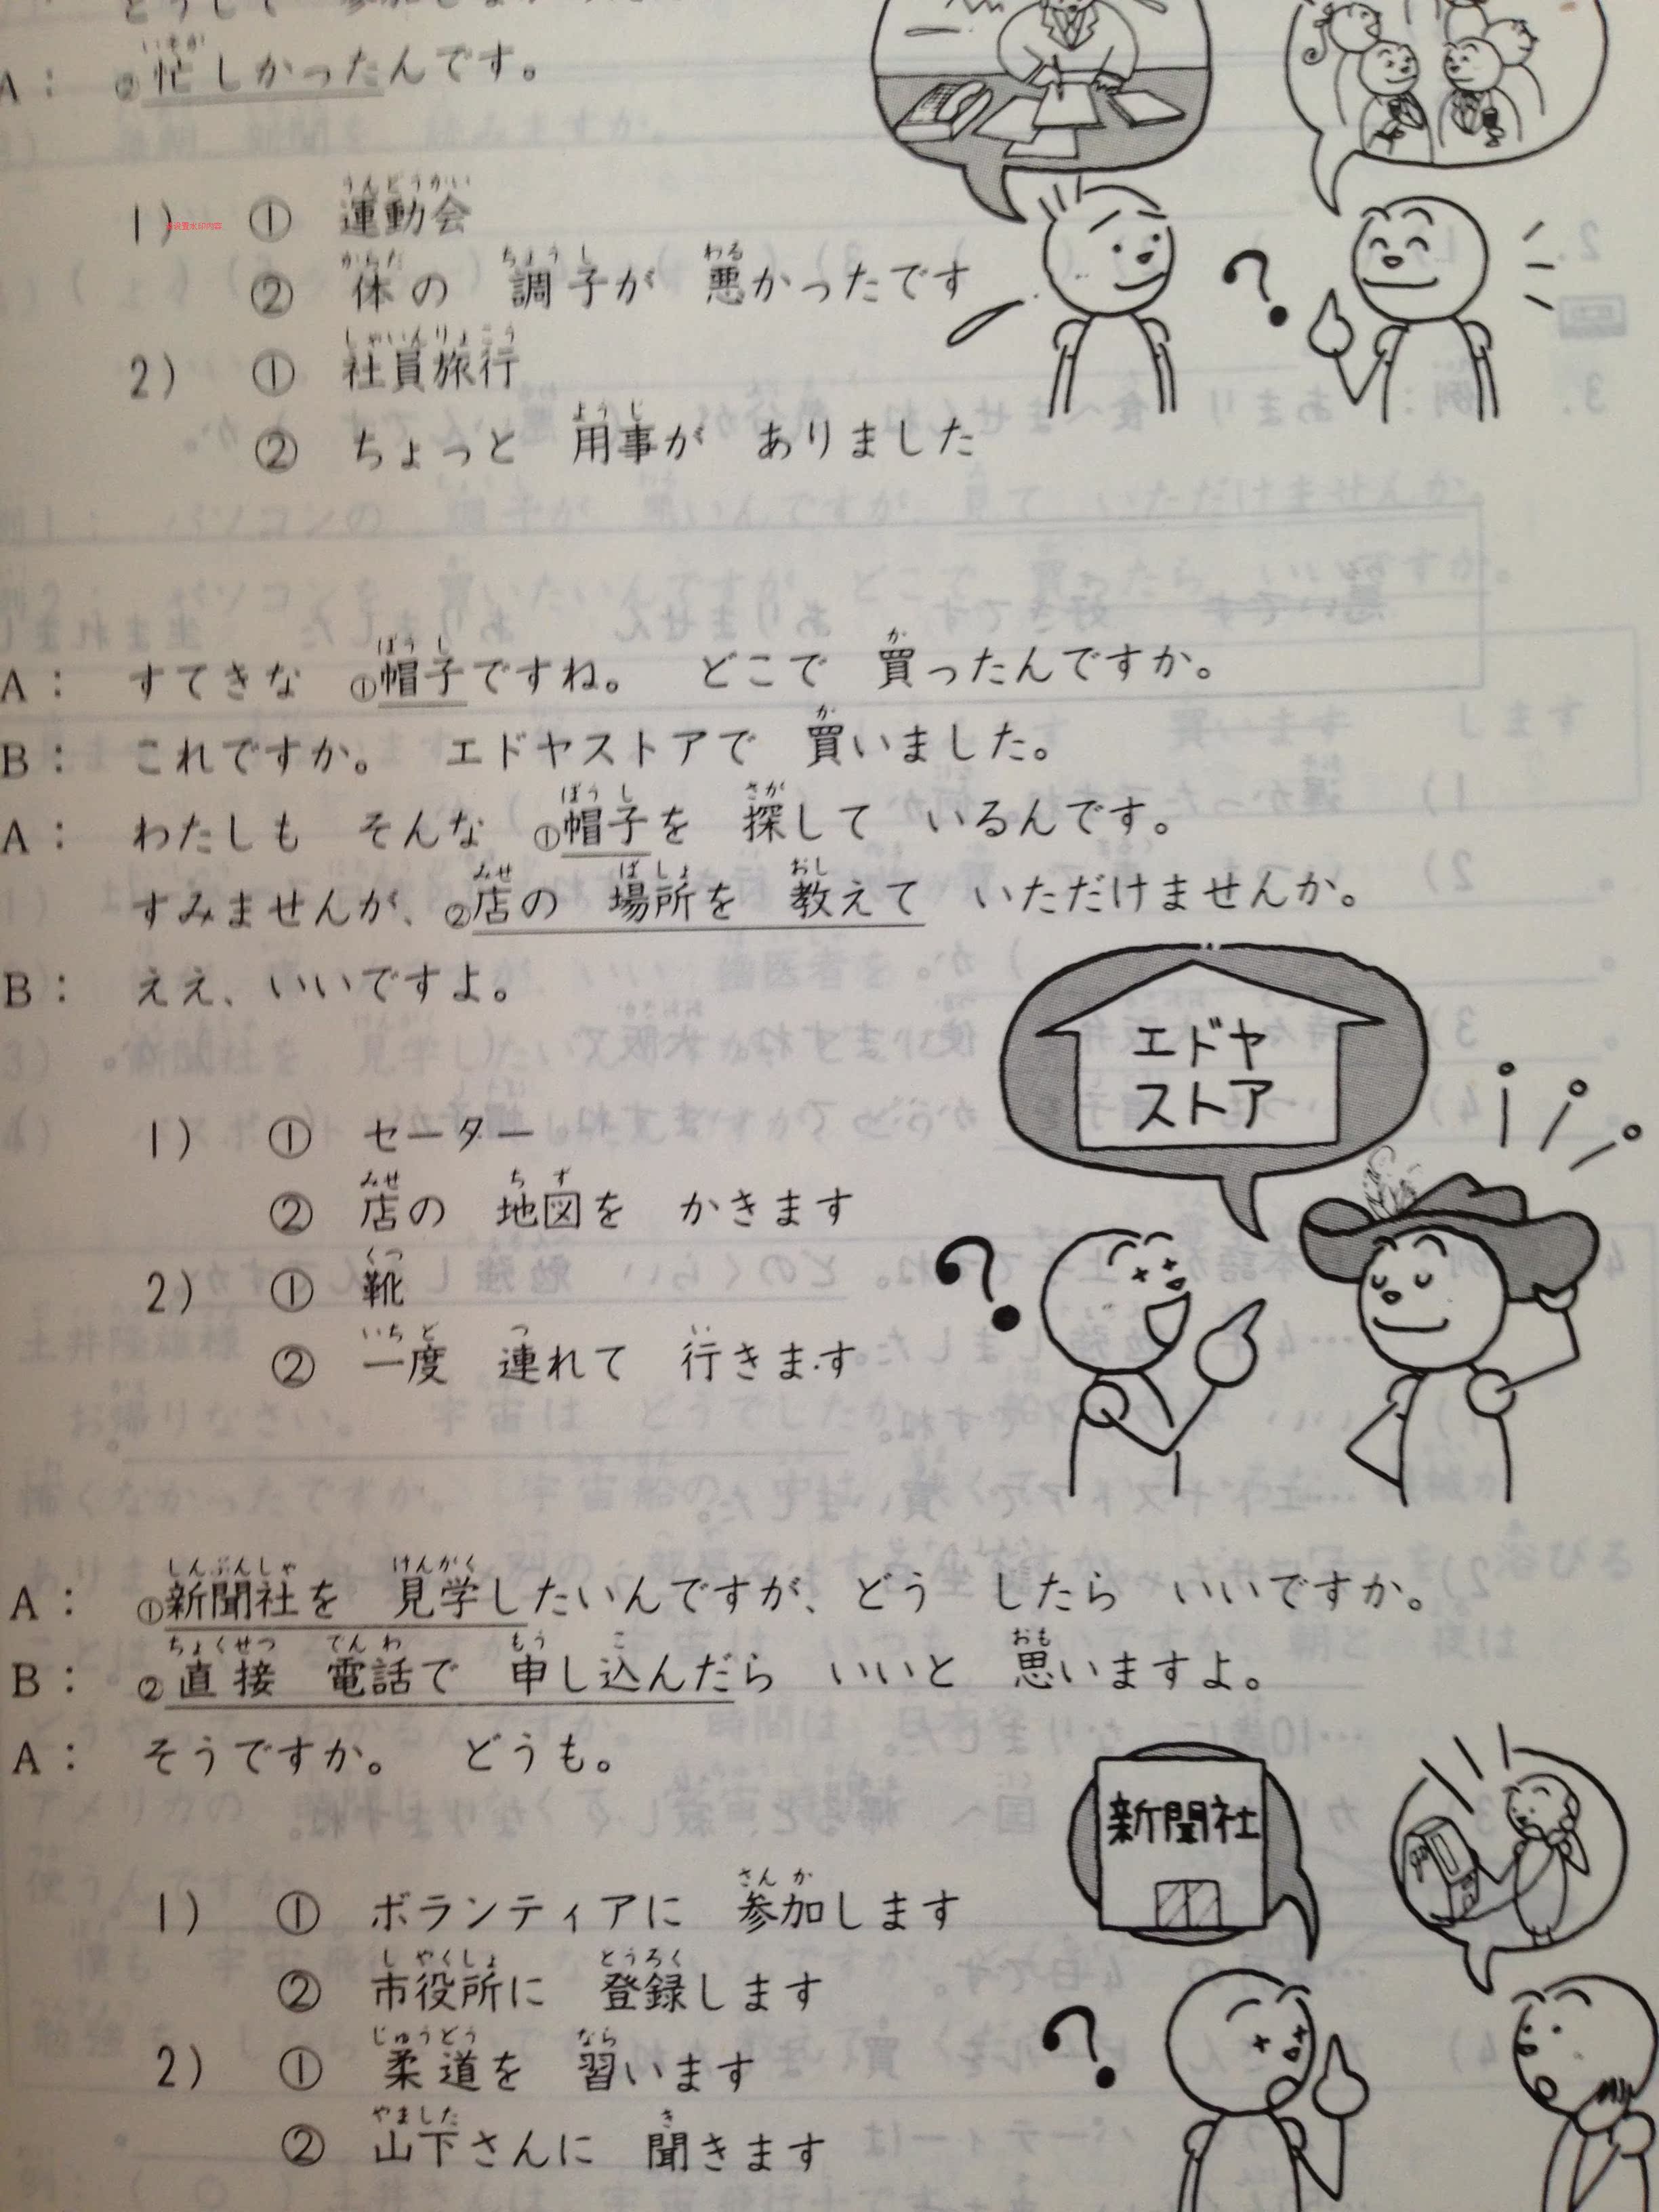 A： ②忙しかったんです。
1） ① 運動会
② 体の 調子が 悪かったです
2） ① 社員旅行
② ちょっと 用事が ありました
A： すてきな ①帽子ですね。 どこで 買ったんですか。
B： これですか。 エドヤストアで 買いました。
A： わたしも そんな ①帽子を 探して いるんです。
すみませんが、②店の 場所を 教えて いただけませんか。
B： ええ、いいですよ。
エドヤ
ストア
1） ① セーター
② 店の 地図を かきます
2） ① 靴
② 一度 連れて 行きます
A： ①新聞社を 見学したいんですが、どう したら いいですか。
B： ②直接 電話で 申し込んだら いいと 思いますよ。
A： そうですか。 どうも。
新聞社
1） ① ボランティアに 参加します
② 市役所に 登録します
2） ① 柔道を 習います
② 山下さんに 聞きます